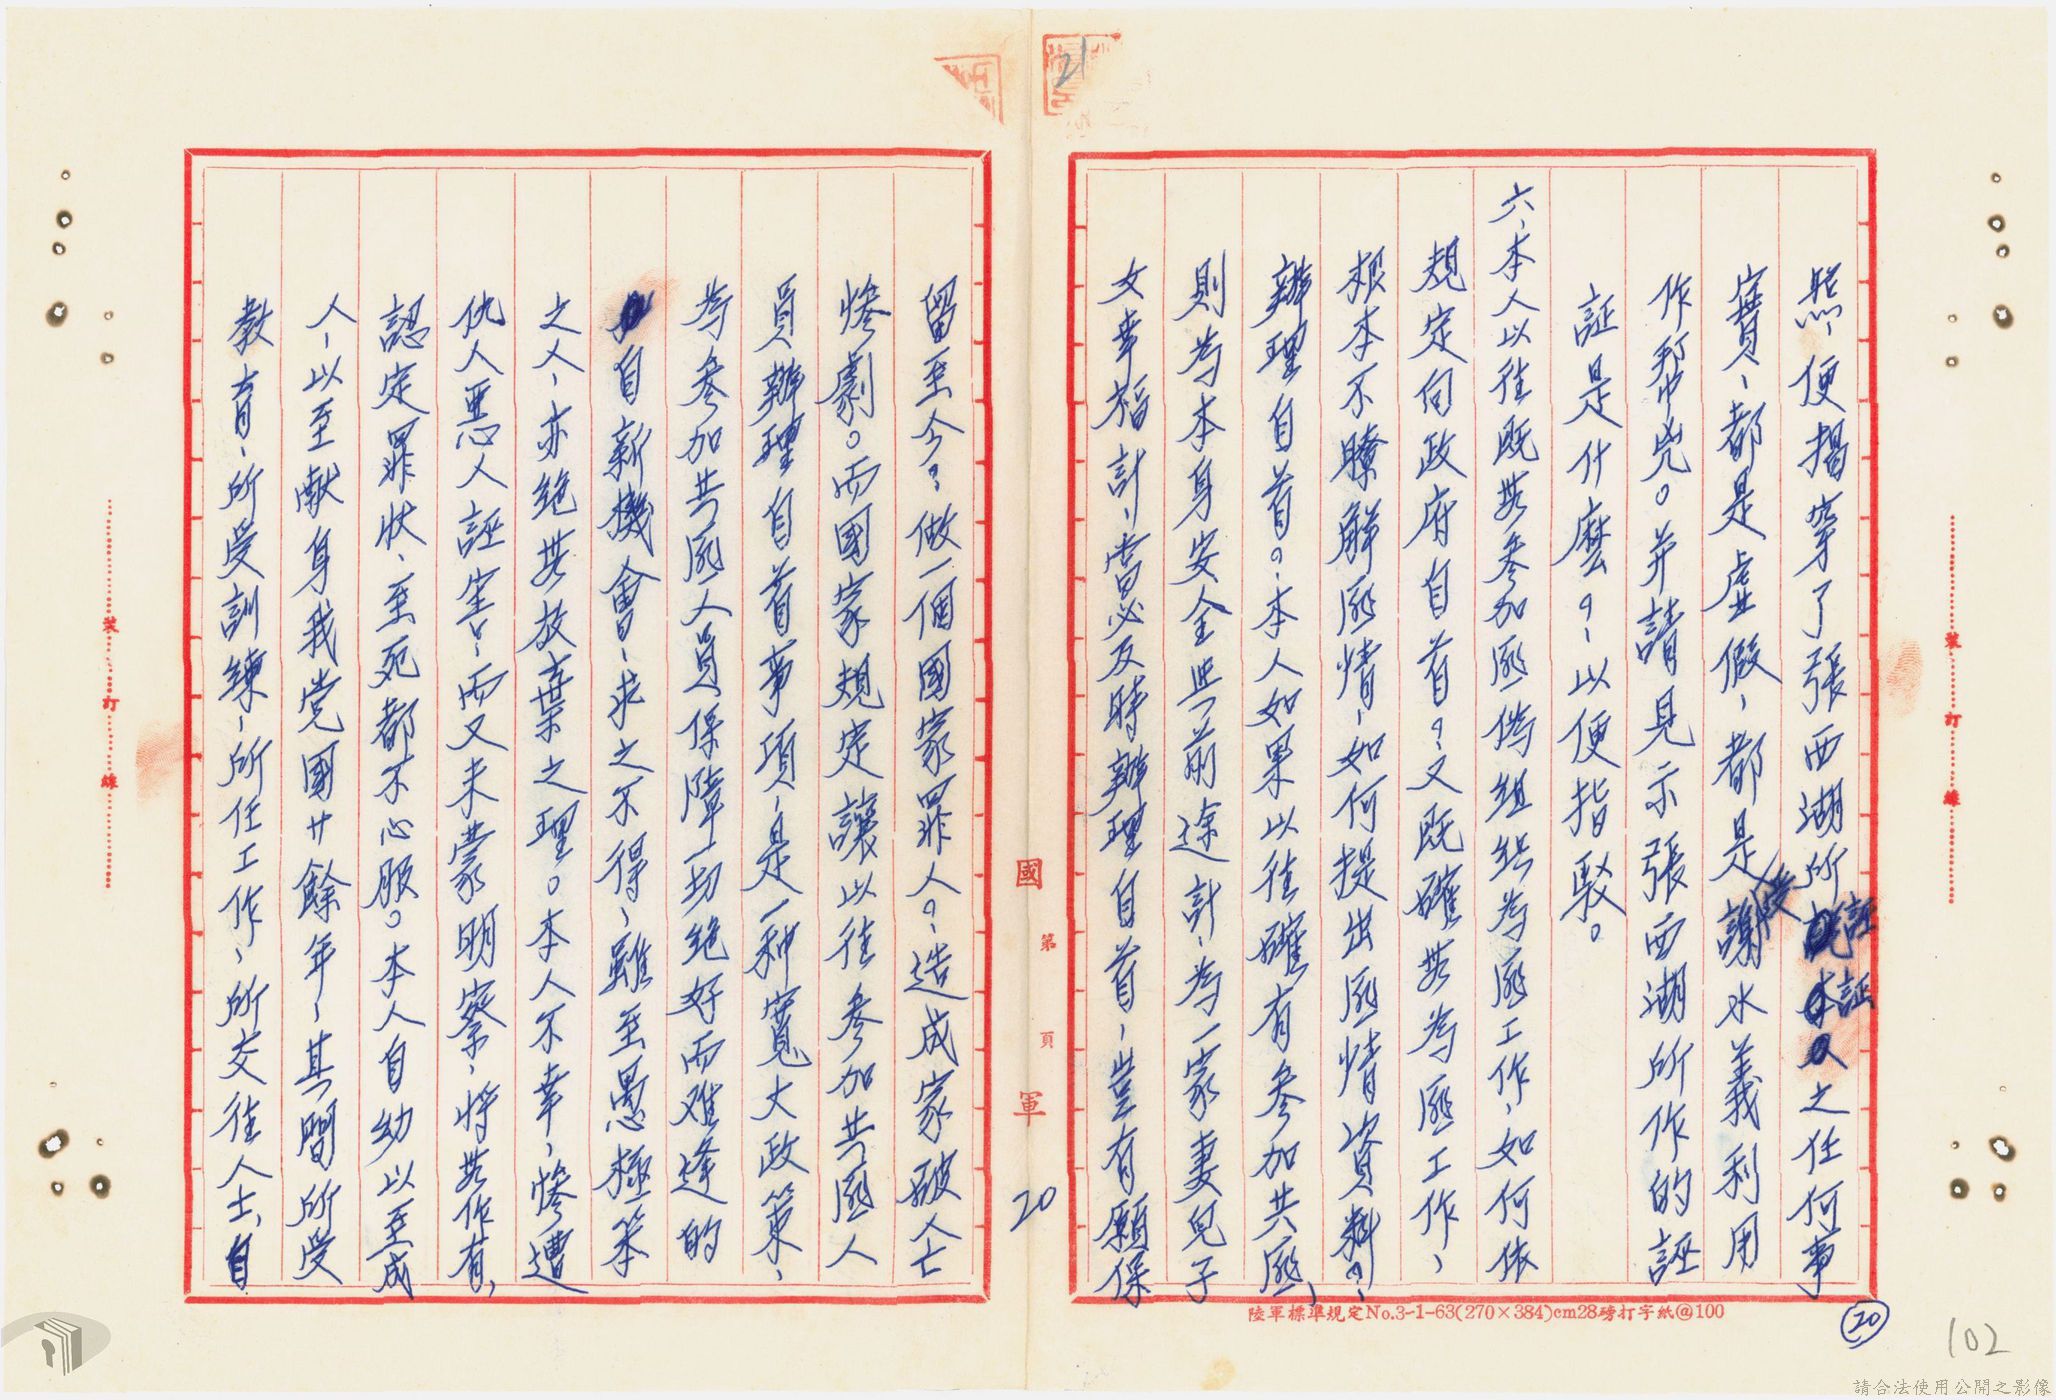 熙、便揭穿了張西湖所誣証之任何事
實、都是虛假、都是受謝水義利用
作幇兇。并請見示張西湖所作的誣
証是什麼？、以便指駁。
六、本人以往既無參加匪偽組織為匪工作、如何依
規定向政府自首？、又既確無為匪工作、
根本不瞭解匪情、如何提出匪情資料？、
辦理自首？、本人如果以往確有參加共匪、
則為本身安全與前途計、為一家妻兒子
女幸福計、當必及時辦理自首、豈有願保
留至今？、做一個國家罪人？、造成家破人亡
慘劇。而國家規定讓以往參加共匪人
員辦理自首事項、是一種寬大政策、
為參加共匪人員保障一切絕好而难逢的
自新機會、求之不得、雖至愚極笨
之人、亦絕無放棄之理。本人不幸、慘遭
仇人惡人誣害、而又未蒙明察、將無作有、
認定罪状、至死都不心服。本人自幼以至成
人、以至献身我党國廿餘年、其間所受
教育、所受訓練、所任工作、所交往人士、自
國 第 頁 軍
20
21
裝 訂 線
裝 訂 線
陸軍標準規定No.3-1-63(270×384)cm28磅打字紙@100
20
102
請合法使用公開之影像